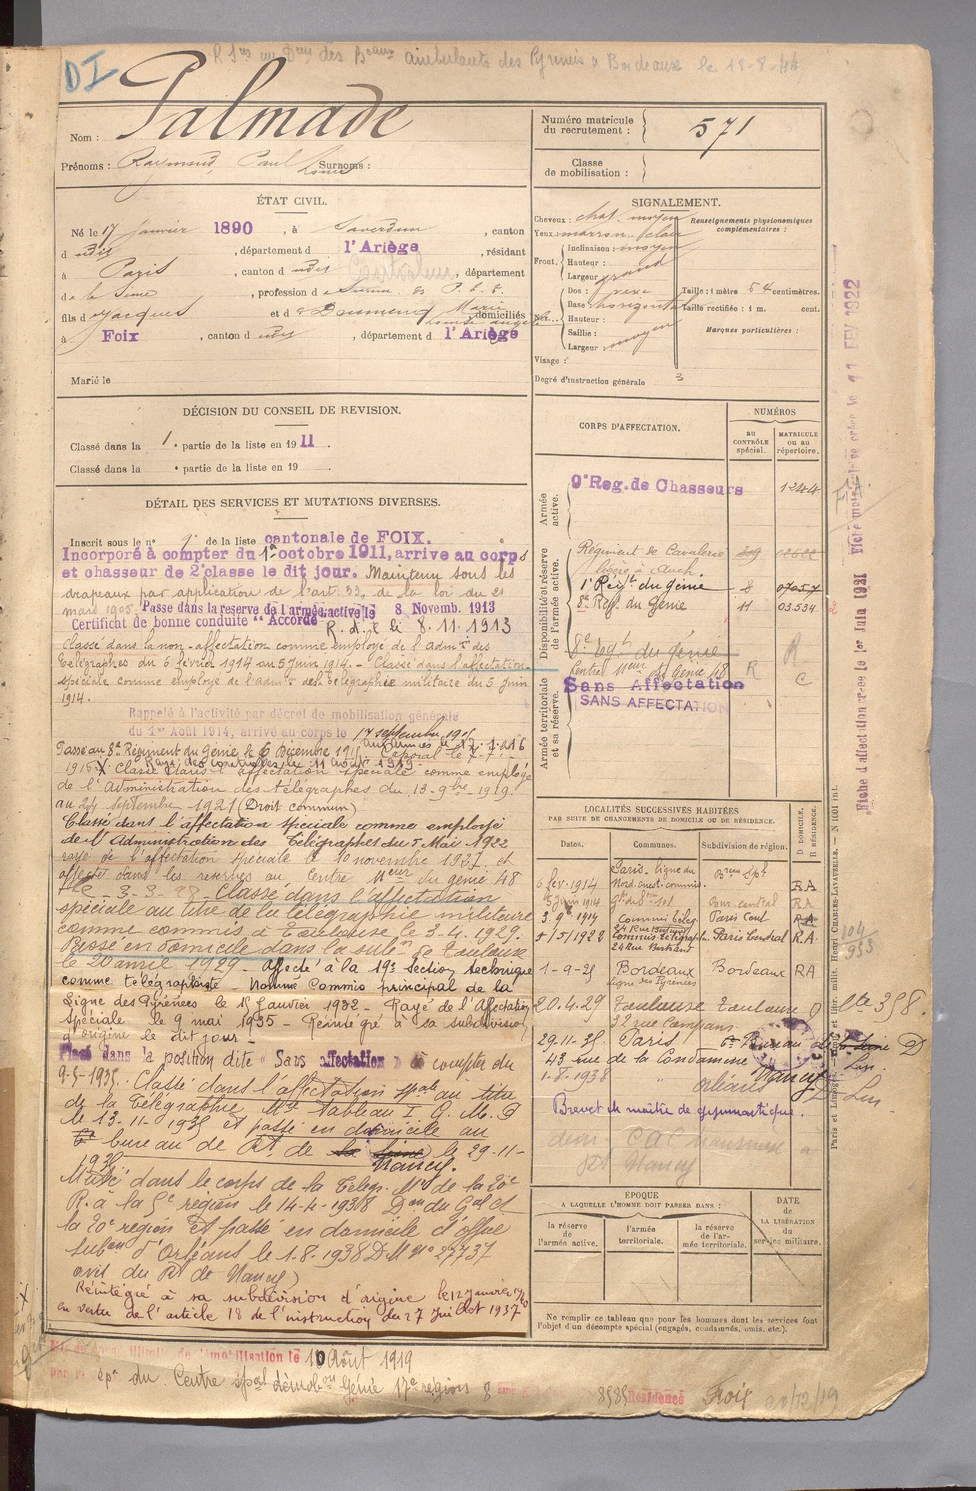 DI
des Beaux ambulants des Pyrénées à Bordeaux le 18-8-44
Nom : Palmade
Prénoms : Raymond, Paul Surnoms :
Louis
Numéro matricule
du recrutement : 571
Classe
de mobilisation :
ÉTAT CIVIL.
Né le 17 janvier 1890, à Saverdun, canton
d udit, département d l'Ariège, résidant
à Paris, canton d udit, département
d e la Seine, profession d e Surnum. des P.T.T.
fils d e Jacques et d e Doumenq Marie, domiciliés
à Foix, canton d udit, département d l'Ariège
Marié le
SIGNALEMENT.
Cheveux : chat. moyen
Yeux : marron clair
Renseignements physionomiques
complémentaires :
Front, Inclinaison : moyen
Hauteur :
Largeur grand
Nez... Dos : vexe
Base : horizontal
Hauteur :
Saillie :
Largeur : moyen
Taille : 1 mètre 54 centimètres.
Taille rectifiée : 1 m. cent.
Marques particulières :
Visage :
Degré d'instruction générale 3
DÉCISION DU CONSEIL DE REVISION.
Classé dans la 1e partie de la liste en 1911.
Classé dans la e partie de la liste en 19
DÉTAIL DES SERVICES ET MUTATIONS DIVERSES.
Inscrit sous le n° de la liste cantonale de FOIX.
Incorporé à compter du 1er octobre 1911, arrive au corps
et chasseur de 2e classe le dit jour. Maintenu sous les
drapeaux par application de l'art. 33, de la loi du 21
mars 1905. Passe dans la reserve de l'armée active le 8 Novemb. 1913
Certificat de bonne conduite "Accordé" R. d. t. le 8.11.1913
Classé dans la non-affectation comme employé de l'admon des
télégraphes du 6 février 1914 au 5 juin 1914. - Classé dans l'affectation
spéciale comme employé de l'admon de la télégraphie militaire du 5 juin
1914.
Rappelé à l'activité par décret de mobilisation générale
du 1er Août 1914, arrivé au corps le 17 septembre 1915
Passé au 8e Régiment du Génie le 6 Décembre 1915 Caporal le
Classé dans l'affectation spéciale comme employé
de l'Administration des télégraphes du 13-9bre-1919
au 24 septembre 1921 (Droit commun)
Classé dans l'affectation spéciale comme employé
de l'Administration des Télégraphes du 5 Mai 1922
rayé de l'affectation spéciale le 10 novembre 1927 et
affecté dans les reserves au Centre Meur du génie 48
le 3-3-28 Classé dans l'affectation
spéciale au titre de la télégraphie militaire
comme commis à Toulouse le 3.4.1929.
Passé en domicile dans la subon de Toulouse
le 20 avril 1929 - Affecté à la 19e section technique
comme télégraphiste - Nommé Commis principal de la
Ligne des Pyrénées le 1er janvier 1932 - Rayé de l'Affectation
Spéciale le 9 mai 1935 - Réintégré à sa subdivision
d'origine le dit jour -
Placé dans la position dite "Sans affectation" à compter du
9-5-1935. Classé dans l'affectation spale au titre
de la Télégraphie Mre Tableau I G. M. P
le 13-11-1935 et passé en domicile au
bureau de Rt de la Seine le 29-11-
1935 Nancy.
Muté dans le corps de la Télég. Mre de la 20e
R. à la 5e région le 14-4-1938 Don du Gal Ct
la 20e région Est passé en domicile d'office
subon d'Orléans le 1.8.1938 D.M. N° 27737
avis du Rt de Nancy)
Réintégré à sa subdivision d'origine le 12 janvier 1940
en vertu de l'article 18 de l'instruction du 27 juillet 1937
CORPS D'AFFECTATION.
NUMÉROS
AU CONTRÔLE spécial.
MATRICULE OU AU répertoire.
Armée active.
9e Rég. de Chasseurs 1244
Disponibilité et réserve de l'armée active.
Régiment de Cavalerie
légère à Auch
1er Regt du génie 8
8e Regt du Génie 11 03.534
8e Regt du génie
Centre Meur du Génie 48 R
Armée territoriale et sa réserve.
Sans Affectation
SANS AFFECTATION
R
C
LOCALITÉS SUCCESSIVES HABITÉES
PAR SUITE DE CHANGEMENTS DE DOMICILE OU DE RÉSIDENCE.
Dates. Communes. Subdivision de région. D DOMICILE. R RÉSIDENCE.
6 fév. 1914 Paris. ligne du RA
5 juin 1914 Bau central RA
3 9bre 1919 Commis télég. Paris Cent RA
5/5/1922 Commis télégraph. Paris Central R.A.
24 Rue Bertrand
1-9-25 Bordeaux Bordeaux RA
ligne des Pyrénées
20.4.29 Toulouse Toulouse D
32 rue Campans
29.11-35 Paris 6e Bureau de la Seine D
43 rue de la Condamine Nancy
1.8.1938 " Orléans
Brevet de maître de gymnastique.
ÉPOQUE
A LAQUELLE L'HOMME DOIT PASSER DANS :
la réserve de l'armée active.
l'armée territoriale.
la réserve de l'armée territoriale.
DATE DE LA LIBÉRATION du service militaire.
Ne remplir ce tableau que pour les hommes dont les services font
l'objet d'un décompte spécial (engagés, condamnés, omis, etc.).
Fiche d'affectation créée le 1er Juin 1921
11 FEV 1922
Paris et Limoges. — Impr. et libr. milit. Henri CHARLES-LAVAUZELLE. — N° 1601 int.
104
953
démobilisation le 10 Août 1919
par le dépôt du Centre spal démobon Génie 17e région 8 8585 Résidence Foix 20/12/19